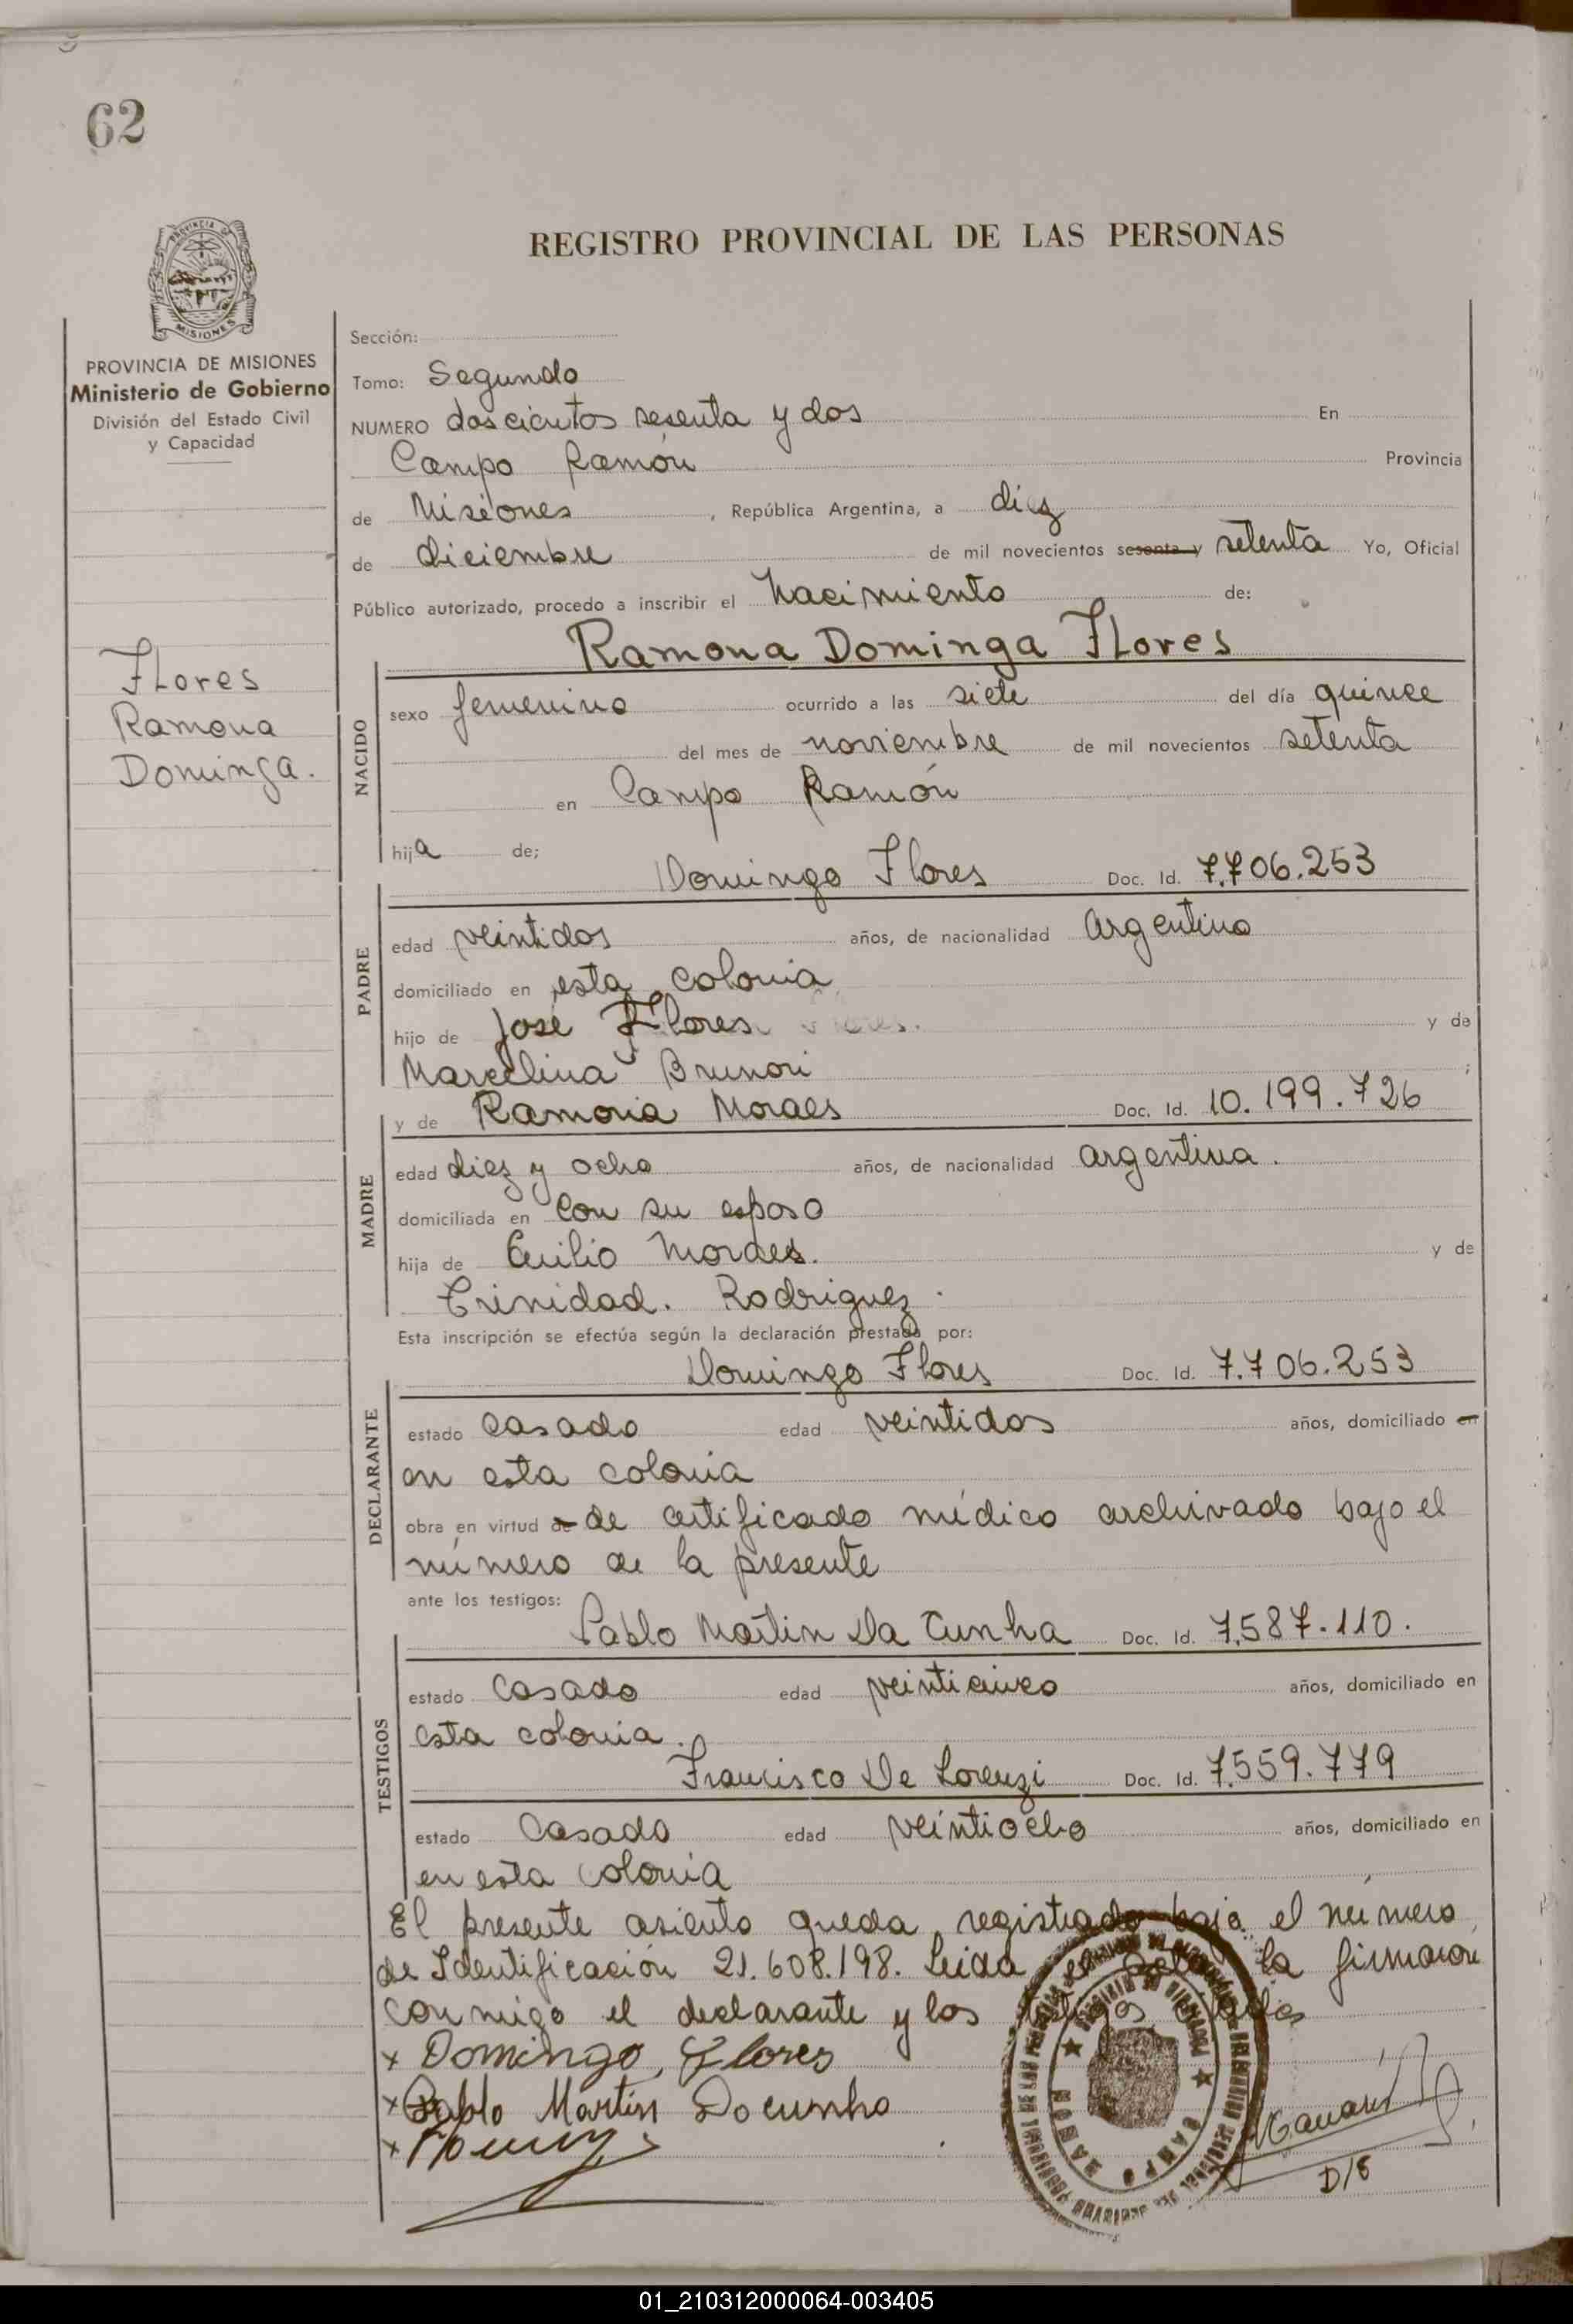 62
REGISTRO PROVINCIAL DE LAS PERSONAS
PROVINCIA DE MISIONES
Ministerio de Gobierno
División del Estado Civil
y Capacidad
Flores
Ramona
Dominga.
Sección:
Tomo: Segundo
NUMERO doscientos sesenta y dos En
Campo Ramón Provincia
de Misiones, República Argentina, a diez
de diciembre de mil novecientos sesenta y setenta Yo, Oficial
Público autorizado, procedo a inscribir el Nacimiento de:
Ramona Dominga Flores
NACIDO
sexo femenino ocurrido a las siete del día quince
del mes de noviembre de mil novecientos setenta
en Campo Ramón
hija de;
Domingo Flores Doc. Id. 7.706.253
PADRE
edad veintidos años, de nacionalidad Argentino
domiciliado en esta colonia
hijo de José Flores y de
Marcelina Brunori ;
y de Ramona Moraes Doc. Id. 10.199.726
MADRE
edad diez y ocho años, de nacionalidad argentina.
domiciliada en con su esposo
hija de Emilio Moraes. y de
Trinidad. Rodriguez.
Esta inscripción se efectúa según la declaración prestada por:
Domingo Flores Doc. Id. 7.706.253
DECLARANTE
estado casado edad veintidos años, domiciliado en
en esta colonia
obra en virtud de de certificado médico archivado bajo el
número de la presente
ante los testigos:
Pablo Martin Da Cunha Doc. Id. 7.587.110.
TESTIGOS
estado Casado edad veinticinco años, domiciliado en
esta colonia.
Francisco De Lorenzi Doc. Id. 7.559.779
estado Casado edad veintiocho años, domiciliado en
en esta colonia
El presente asiento queda registrado bajo el número
de Identificación 21.608.198. Leida el acta la firmaron
conmigo el declarante y los testigos
x Domingo Flores
x Pablo Martin Da cunha
x
CAMPO RAMON
D/8
01_210312000064-003405